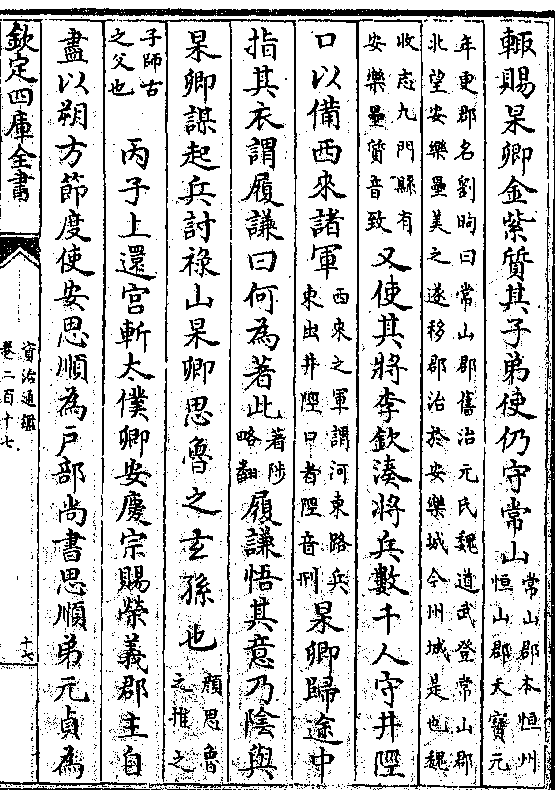 輙賜杲卿金紫質其子弟使仍守常山常山郡本恒州
恒山郡天寶元
年更郡名劉昫曰常山郡舊治元氏魏道武登常山郡
北望安樂壘美之遂移郡治於安樂城今州城是也魏
收志九門縣有
安樂壘質音致又使其將李欽湊將兵數千人守井陘
口以備西來諸軍西來之軍謂河東路兵
東出井陘口者陘音刑杲卿歸途中
指其衣謂履謙曰何為著此著陟
略翻履謙悟其意乃陰與
杲卿謀起兵討祿山杲卿思魯之玄孫也顔思魯
之推之
子師古
之父也丙子上還宮斬太僕卿安慶宗賜榮義郡主自
盡以朔方節度使安思順為戶部尚書思順弟元貞為
欽定四庫全書
資治通鑑
卷二百十七
十七